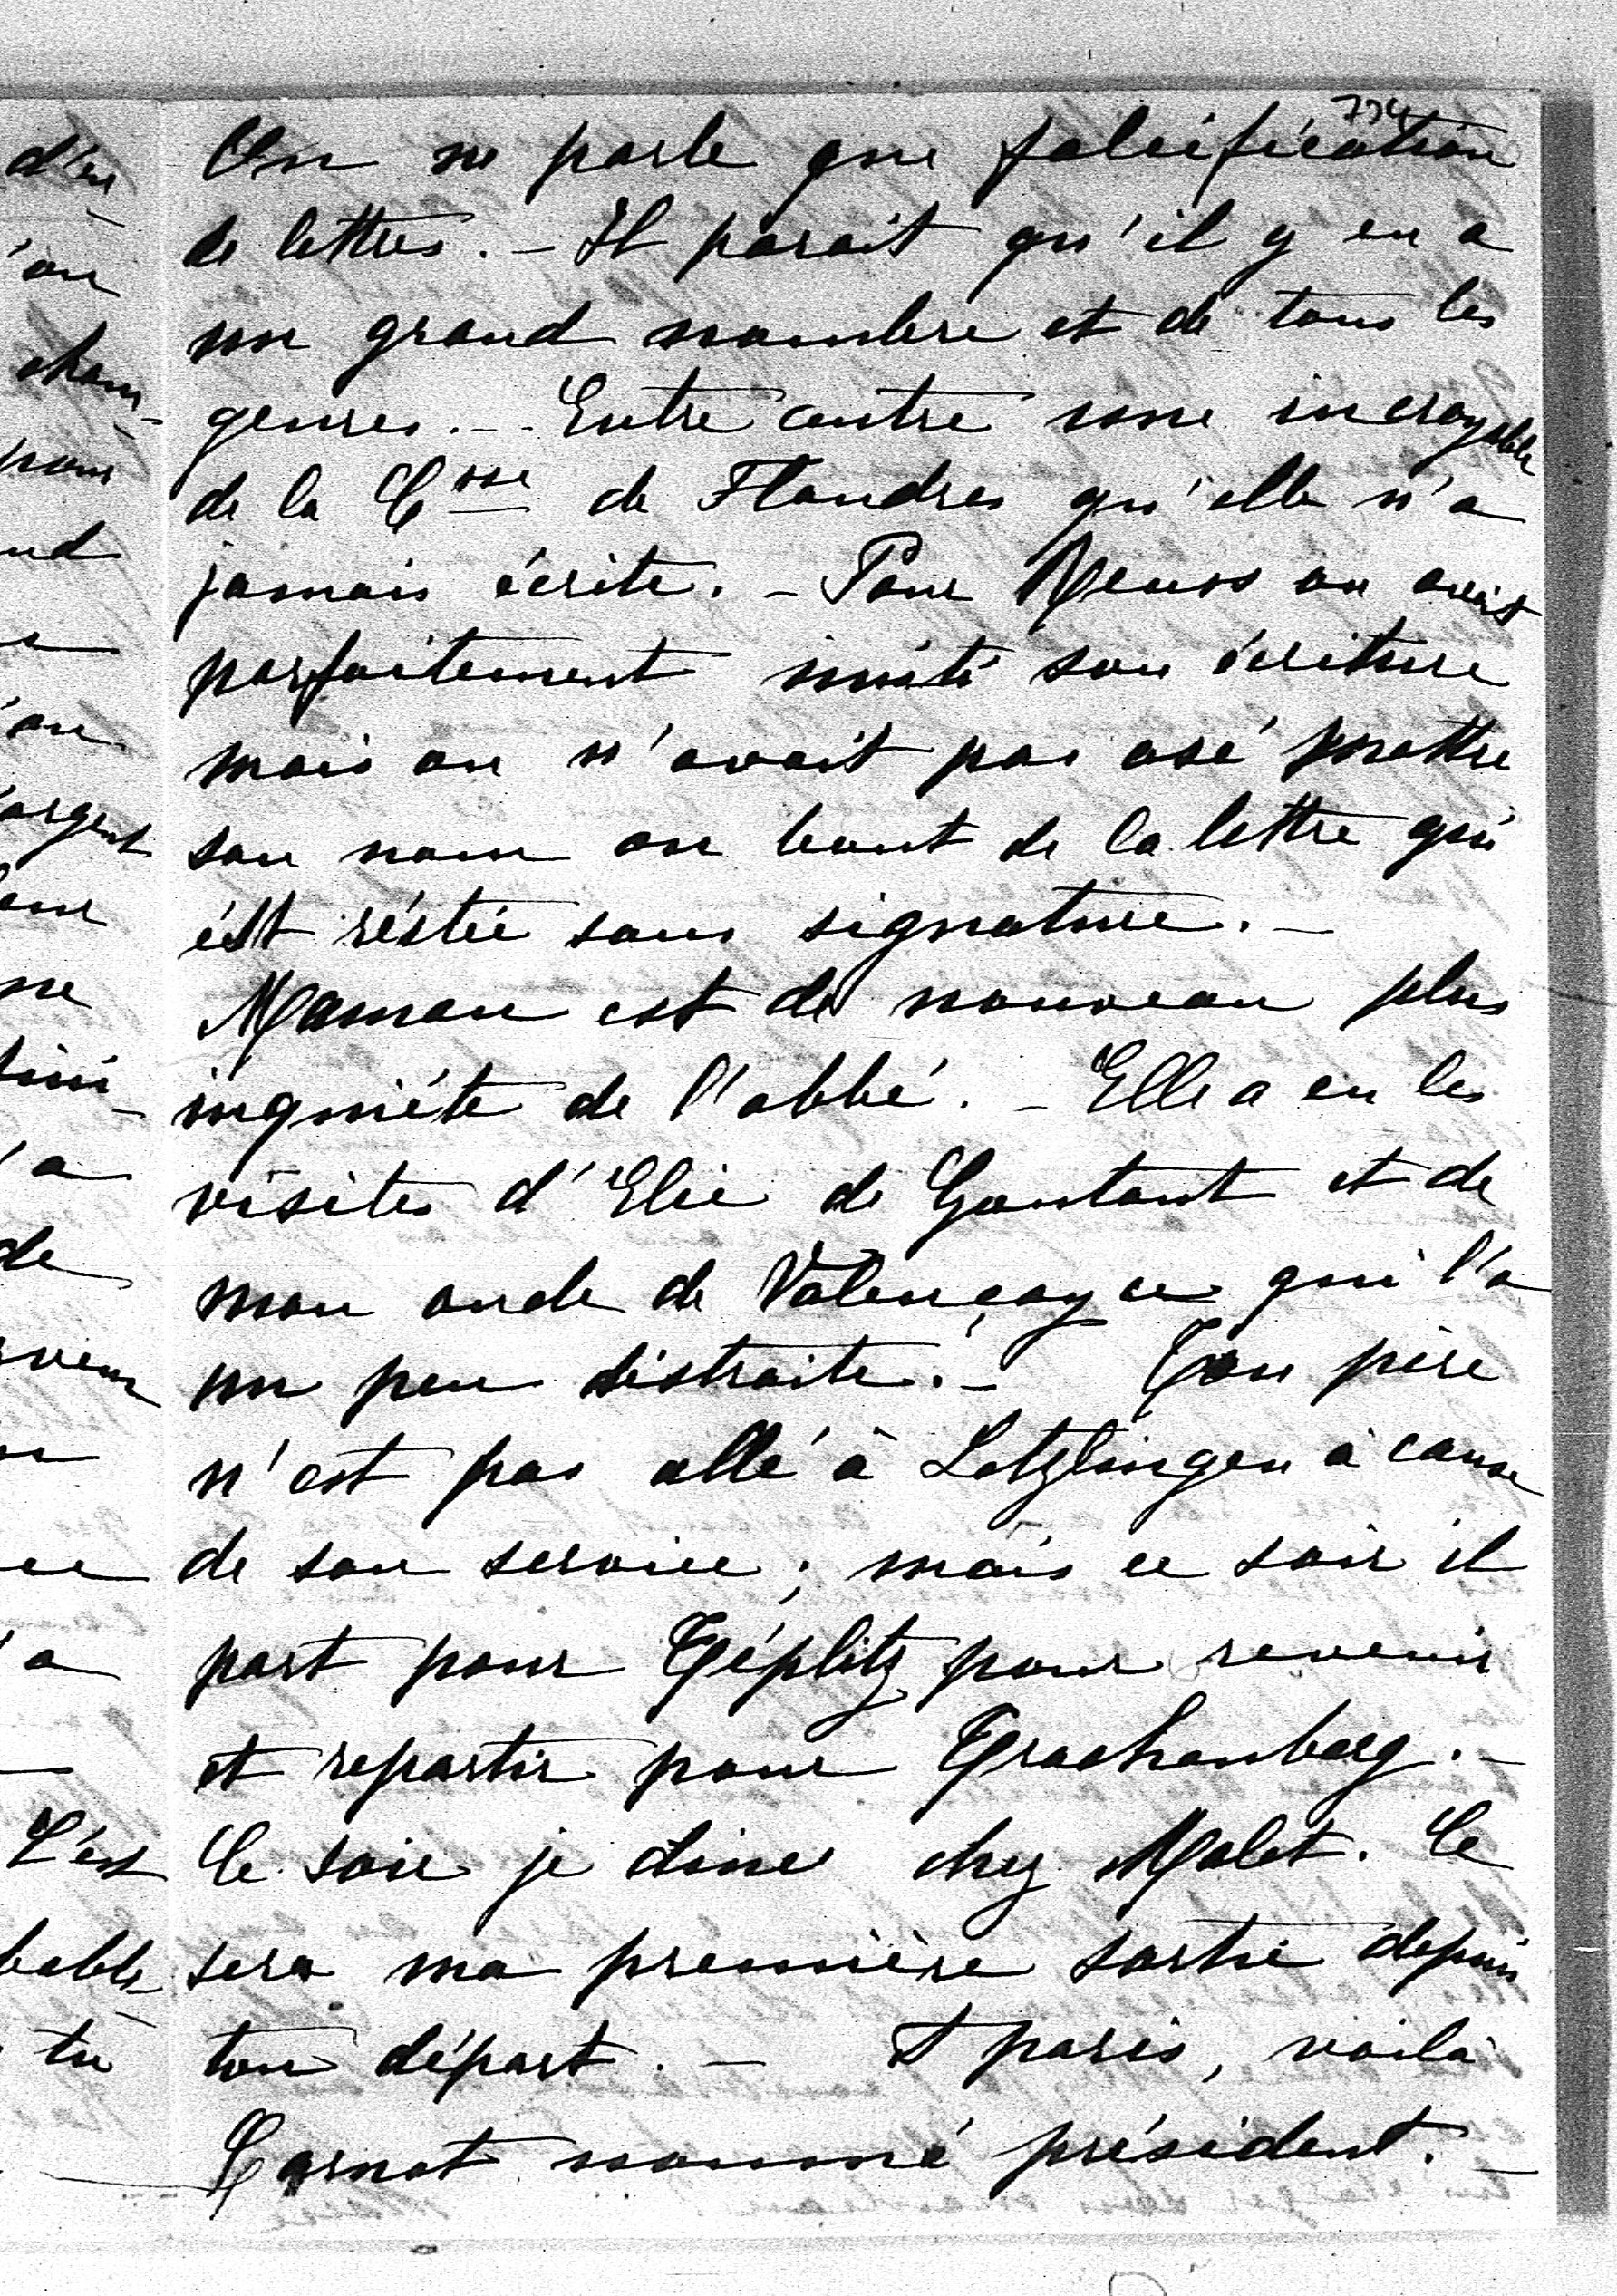 774
On ne parle que falsification
de lettres. - Il parait qu'il y en a
un grand nombre et de tous les
genres. - Entre autre une incroyable
de la Csse de Flandres qu'elle n'a
jamais écrite. - Pour Reuss on avait
parfaitement imité son écriture
mais on n'avait pas osé mettre
son nom au bout de la lettre qui
est réstée sans signature. -
Maman est de nouveau plus
inquiéte de l'abbé. - Elle a eu les
visites d'Elie de Gontaut et de
mon oncle de Valençay ce qui l'a
un peu distraite. - Ton père
n'est pas allé à Letzlingen à cause
de son service; mais ce soir il
part pour Téplitz pour revenir
et repartir pour Trachenberg. -
Ce soir je dine chez Malet. Ce
sera ma première sortie depuis
ton départ. - A Paris, voilà
Carnot nommé président. -
d'en
'on
cham-
pour
nd
'on
'argent
ne
'a
de
'a
C'est
bable
tu